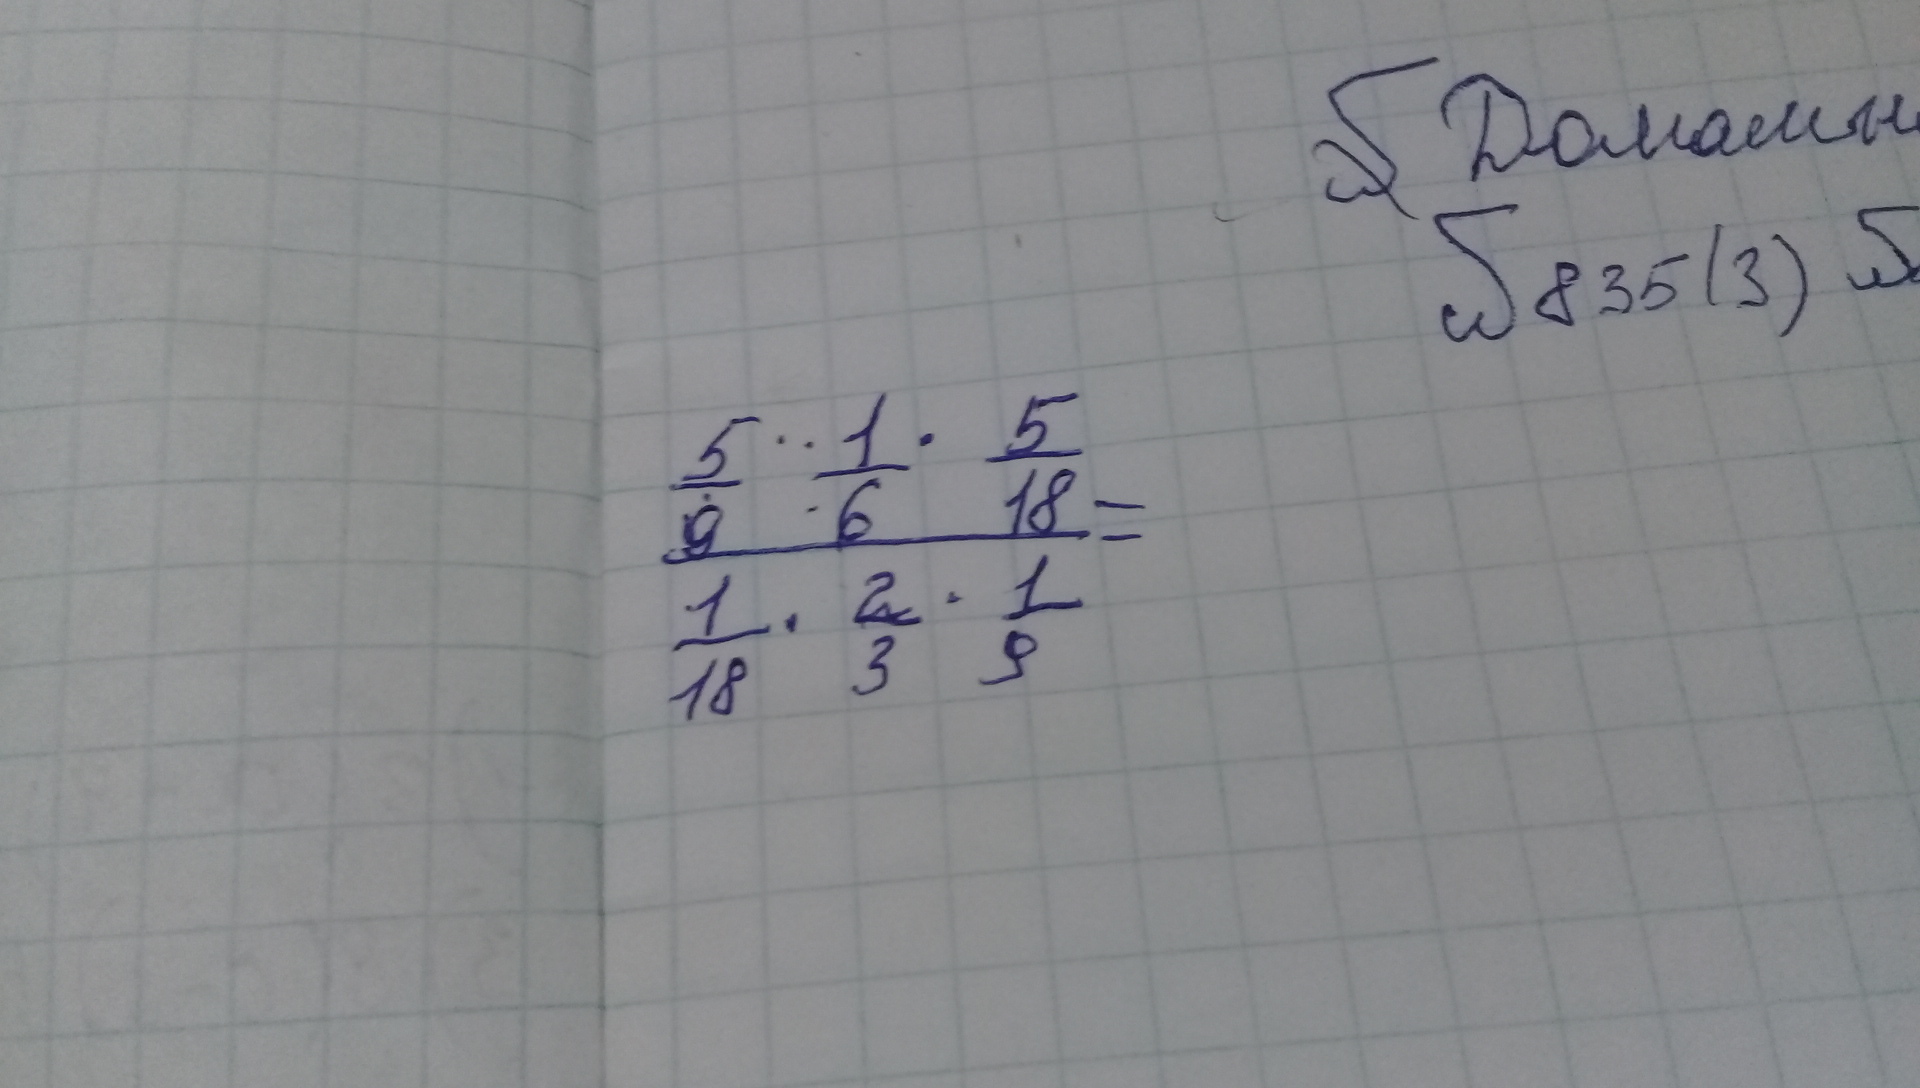 Домашн
835(3)
5/9 · 1/6 · 5/18 =
1/18 · 2/3 · 1/9